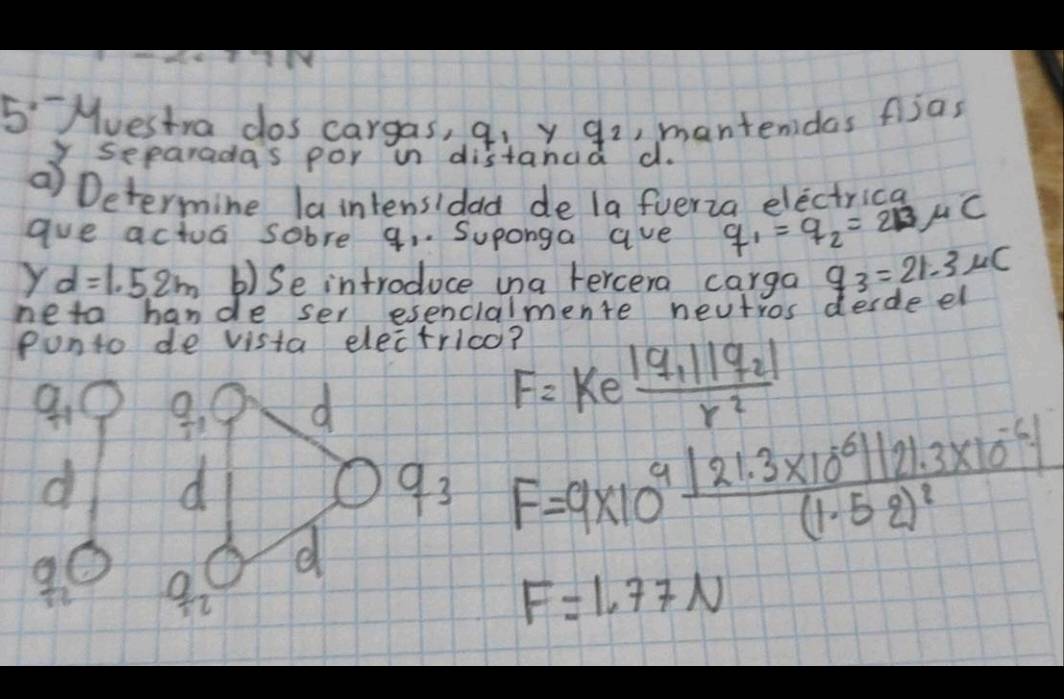 5.- Muestra dos cargas, q1 y q2, mantenidas fijas
y separadas por un distancia d.
a) Determine la intensidad de la fuerza eléctrica
que actuá sobre q1. Suponga que q1 = q2 = 213 μC
Y d=1.52m b) Se introduce una tercera carga q3=21.3 μC
neta han de ser esencialmente neutros desde el
punto de vista eléctrico?
q1 q1 d
d d q3
q2 q2 d
F= Ke |q1||q2| / r²
F=9x10⁹ |21.3x10⁻⁶||21.3x10⁻⁶| / (1.52)²
F=1.77N